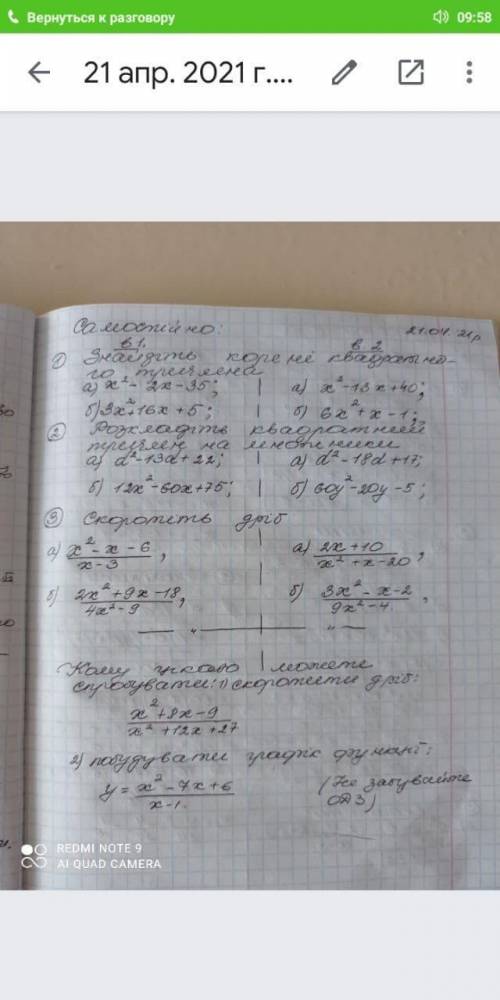 Вернуться к разговору 09:58
21 апр. 2021 г....
Самостійно: 21.04.21р
в 1. в. 2
① Знайдіть корені квадратно-
го тричлена
а) x² - 2x - 35; а) x² - 13x + 40;
б) 3x² + 16x + 5; б) 6x² + x - 1;
② Розкладіть квадратний
тричлен на множники
а) d² - 13d + 22; а) d² - 18d + 17;
б) 12x² - 60x + 75; б) 60y² - 20y - 5;
③ Скоротіть дріб
а) x² - x - 6 / x - 3, а) 2x + 10 / x² + x - 20,
б) 2x² + 9x - 18 / 4x² - 9, б) 3x² - x - 2 / 9x² - 4.
Кому цікаво можете
спробувати: 1) скоротити дріб:
x² + 8x - 9 / x² + 12x + 27
2) побудувати графік функції:
y = x² - 7x + 6 / x - 1. (Не забувайте
ОДЗ)
REDMI NOTE 9
AI QUAD CAMERA